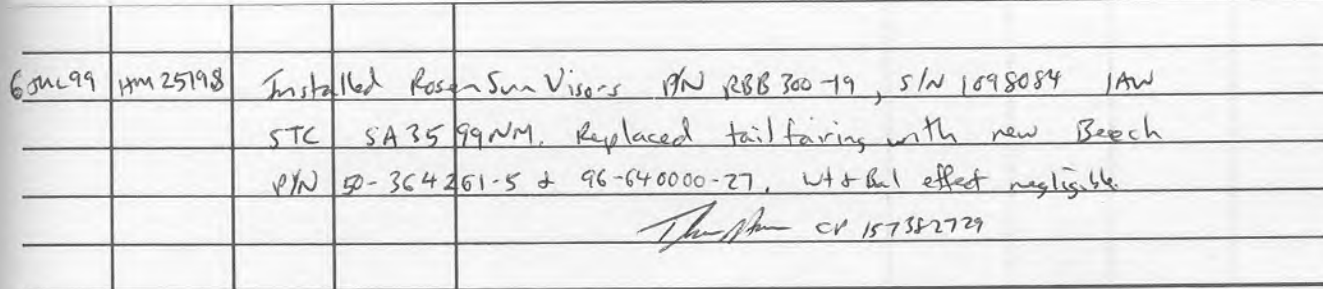 6 JUL 99 HM 2519.8 Installed Rosen Sun Visors P/N RBB 300-19, S/N 1098084 IAW
STC SA3599NM. Replaced tail fairing with new Beech
P/N 50-364261-5 & 96-640000-27. Wt & Bal effect negligible.
CP 157382729